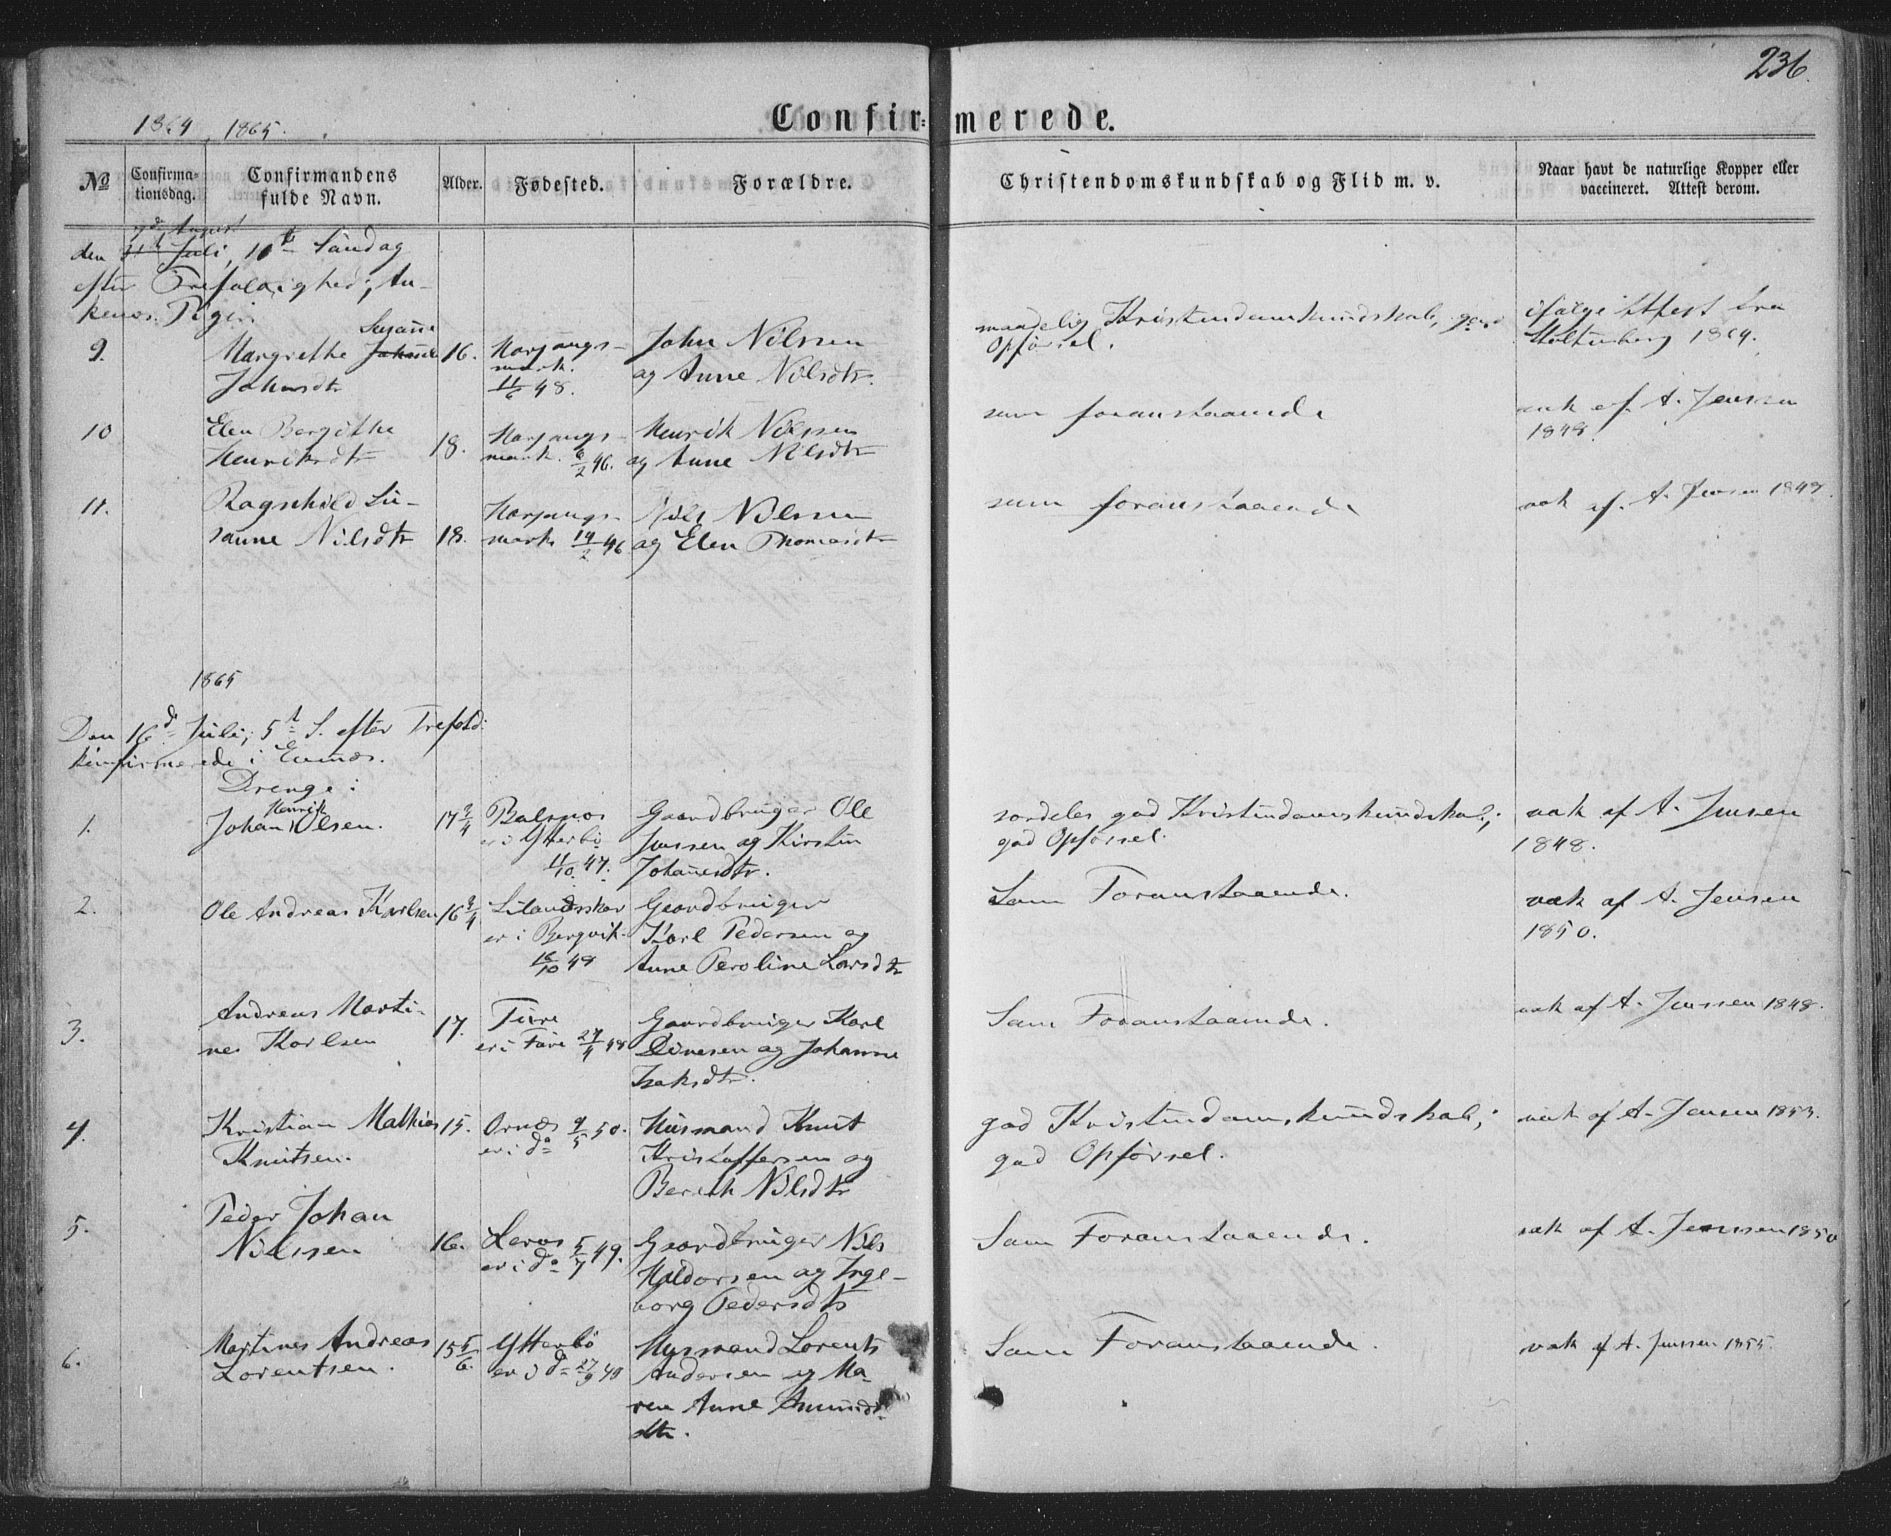 236.
1864, 1865.
Confirmerede.
No
Confirmationsdag.
Confirmandens fulde Navn.
Alder.
Fødested.
Forældre.
Christendomskundskab og Flid m. v.
Naar havt de naturlige Kopper eller vaccineret. Attest derom.
7de August
den 31te Juli, 10de Søndag
efter Trefoldighed; An-
kenes. Piger.
9.
Margrethe Johanne Susanne
Johnsdtr
16.
Harjangs-
mark.
11/6 48.
John Nilssen
og Anne Nilsdtr.
maadelig Kristendomskundskab, god
Opførsel.
ifølge Attest fra
Moltenberg 1864.
10
Elen Bergithe
Henriksdtr
18.
Harjangs-
mark. 6/2 46.
Henrik Nilssen
og Anne Nilsdtr
som foranstaaende
vak af. A. Jenssen
1848.
11.
Ragnhild Su-
sanne Nilsdtr
18.
Harjangs-
mark 14/2 46
Nils Nilssen
og Elen Thomasdtr
som foranstaaende
vak af. A. Jensen 1849.
1865
Den 16de Juli, 5te S. efter Trefold:
konfirmerede i Evenæs.
Drenge:
1.
Johan Henrik Olsen.
17 3/4
Balsnes
er i Ytterbø
11/10 47.
Gaardbruger Ole
Jenssen og Kirsten
Johannesdtr.
særdeles god Kristendomskundskab;
god Opførsel.
vak af A. Jensen
1848.
2.
Ole Andreas Karlsen
16 3/4
Lilandsskar
er i Bergvik.
18/10 48
Gaardbruger
Karl Pedersen og
Anne Peroline Larsdtr
Som Foranstaaende.
vak af A. Jensen
1850.
3.
Andreas Marti-
nes Karlsen
17.
er i 27/4 48
Gaardbruger Karl
Dinesen og Johanne
Isaksdtr.
Som Foranstaaende.
vak af A. Jenssen 1848.
4.
Kristian Mathias
Knutsen.
15.
Ornes 9/5 50.
er i do
Husmand Knut
Kristoffersen og
Bereth Nilsdtr
god Kristendomskundskab;
god Opførsel.
vak af A. Jensen 1853.
5.
Peder Johan
Nilssen
16.
Lenes 5/7 49.
er i do
Gaardbruger Nils
Haldorsen og Inge-
borg Pedersdtr
Som Foranstaaende.
vak af A. Jenssen 1850
6.
Martines Andreas
Lorentsen.
15 5/6.
Ytterbø
er i do 27/9 49
Husmand Lorents
Andersen og Ma-
ren Anne Amunds-
dtr.
Som Foranstaaende.
vak af A. Jenssen 1855.